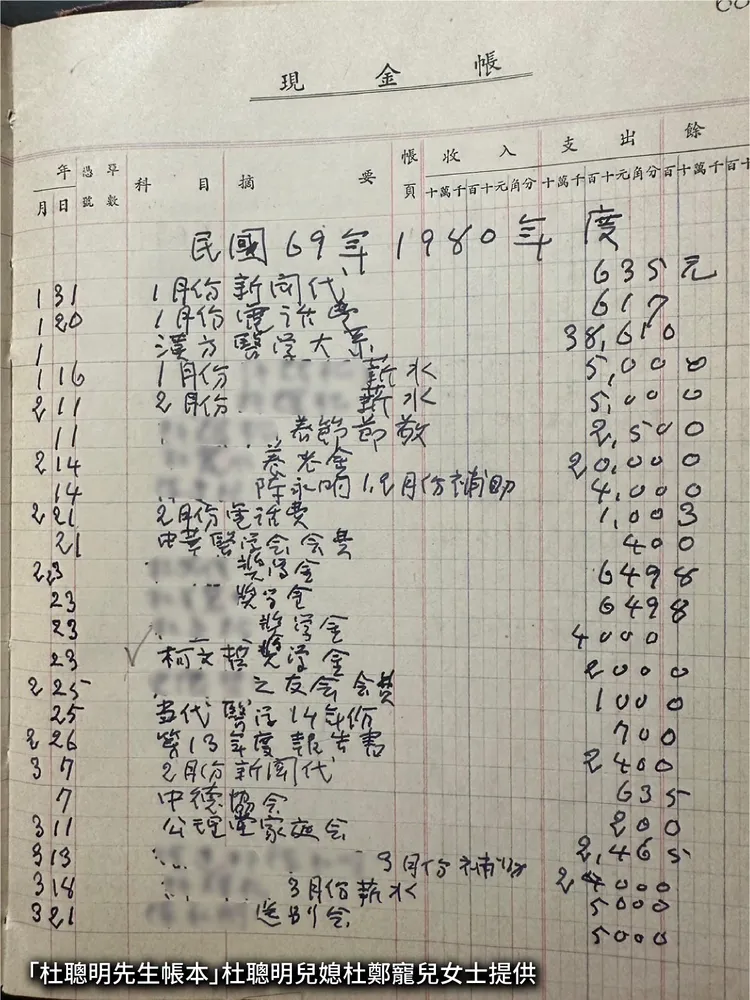 現金帳
年 憑 單 科 目 摘 要 帳 收 入 支 出 餘
月 日 號 數 頁 十萬千百十元角分 十萬千百十元角分 十萬千百十
民國69年1980年度
1 31 1月份新聞代 635元
1 20 1月份電話費 617
1 漢方醫学大系 38,610
1 16 1月份 薪水 5,000
2 11 2月份 薪水 5,000
11 春節節敬 2,500
2 14 養老金 20,000
14 陳永明1,2月份補助 4,000
2 21 2月份電話費 1,003
21 中華醫学会会費 400
2 23 獎学金 6498
23 獎学金 6498
23 獎学金 4000
23 ✓柯文哲獎学金 2000
2 25 之友会会費 1000
25 当代醫学1年份 700
2 26 第13年度報告書 2400
3 7 2月份新聞代 635
7 中德協会 200
3 11 公理堂家庭会 2,465
3 13 3月份補助 4000
3 18 3月份薪水 5000
3 21 送別会 5000
「杜聰明先生帳本」杜聰明兒媳杜鄭寵兒女士提供